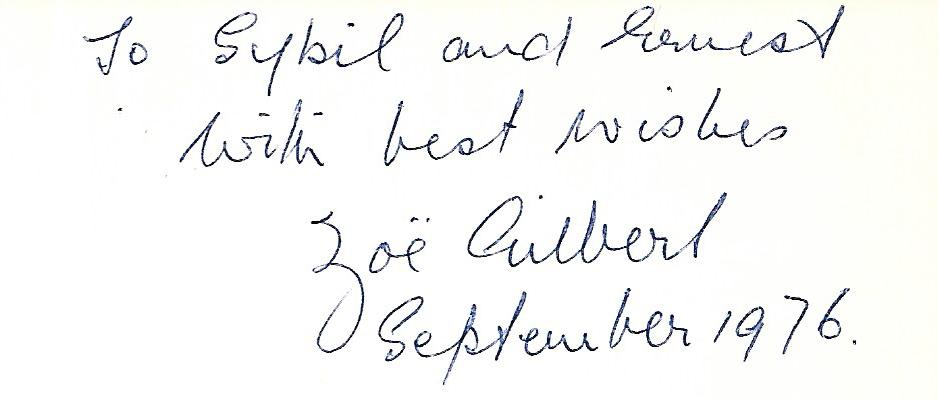 To Sybil and Ernest
with best wishes
Zoë Culbert
September 1976.